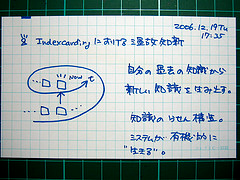 2006.12.19 Tu
17:25
Indexcardingにおける温故知新
Now
t
自分の過去の知識から
新しい知識を生み出す。
知識のらせん構造。
システムが有機的に
"生きる"。